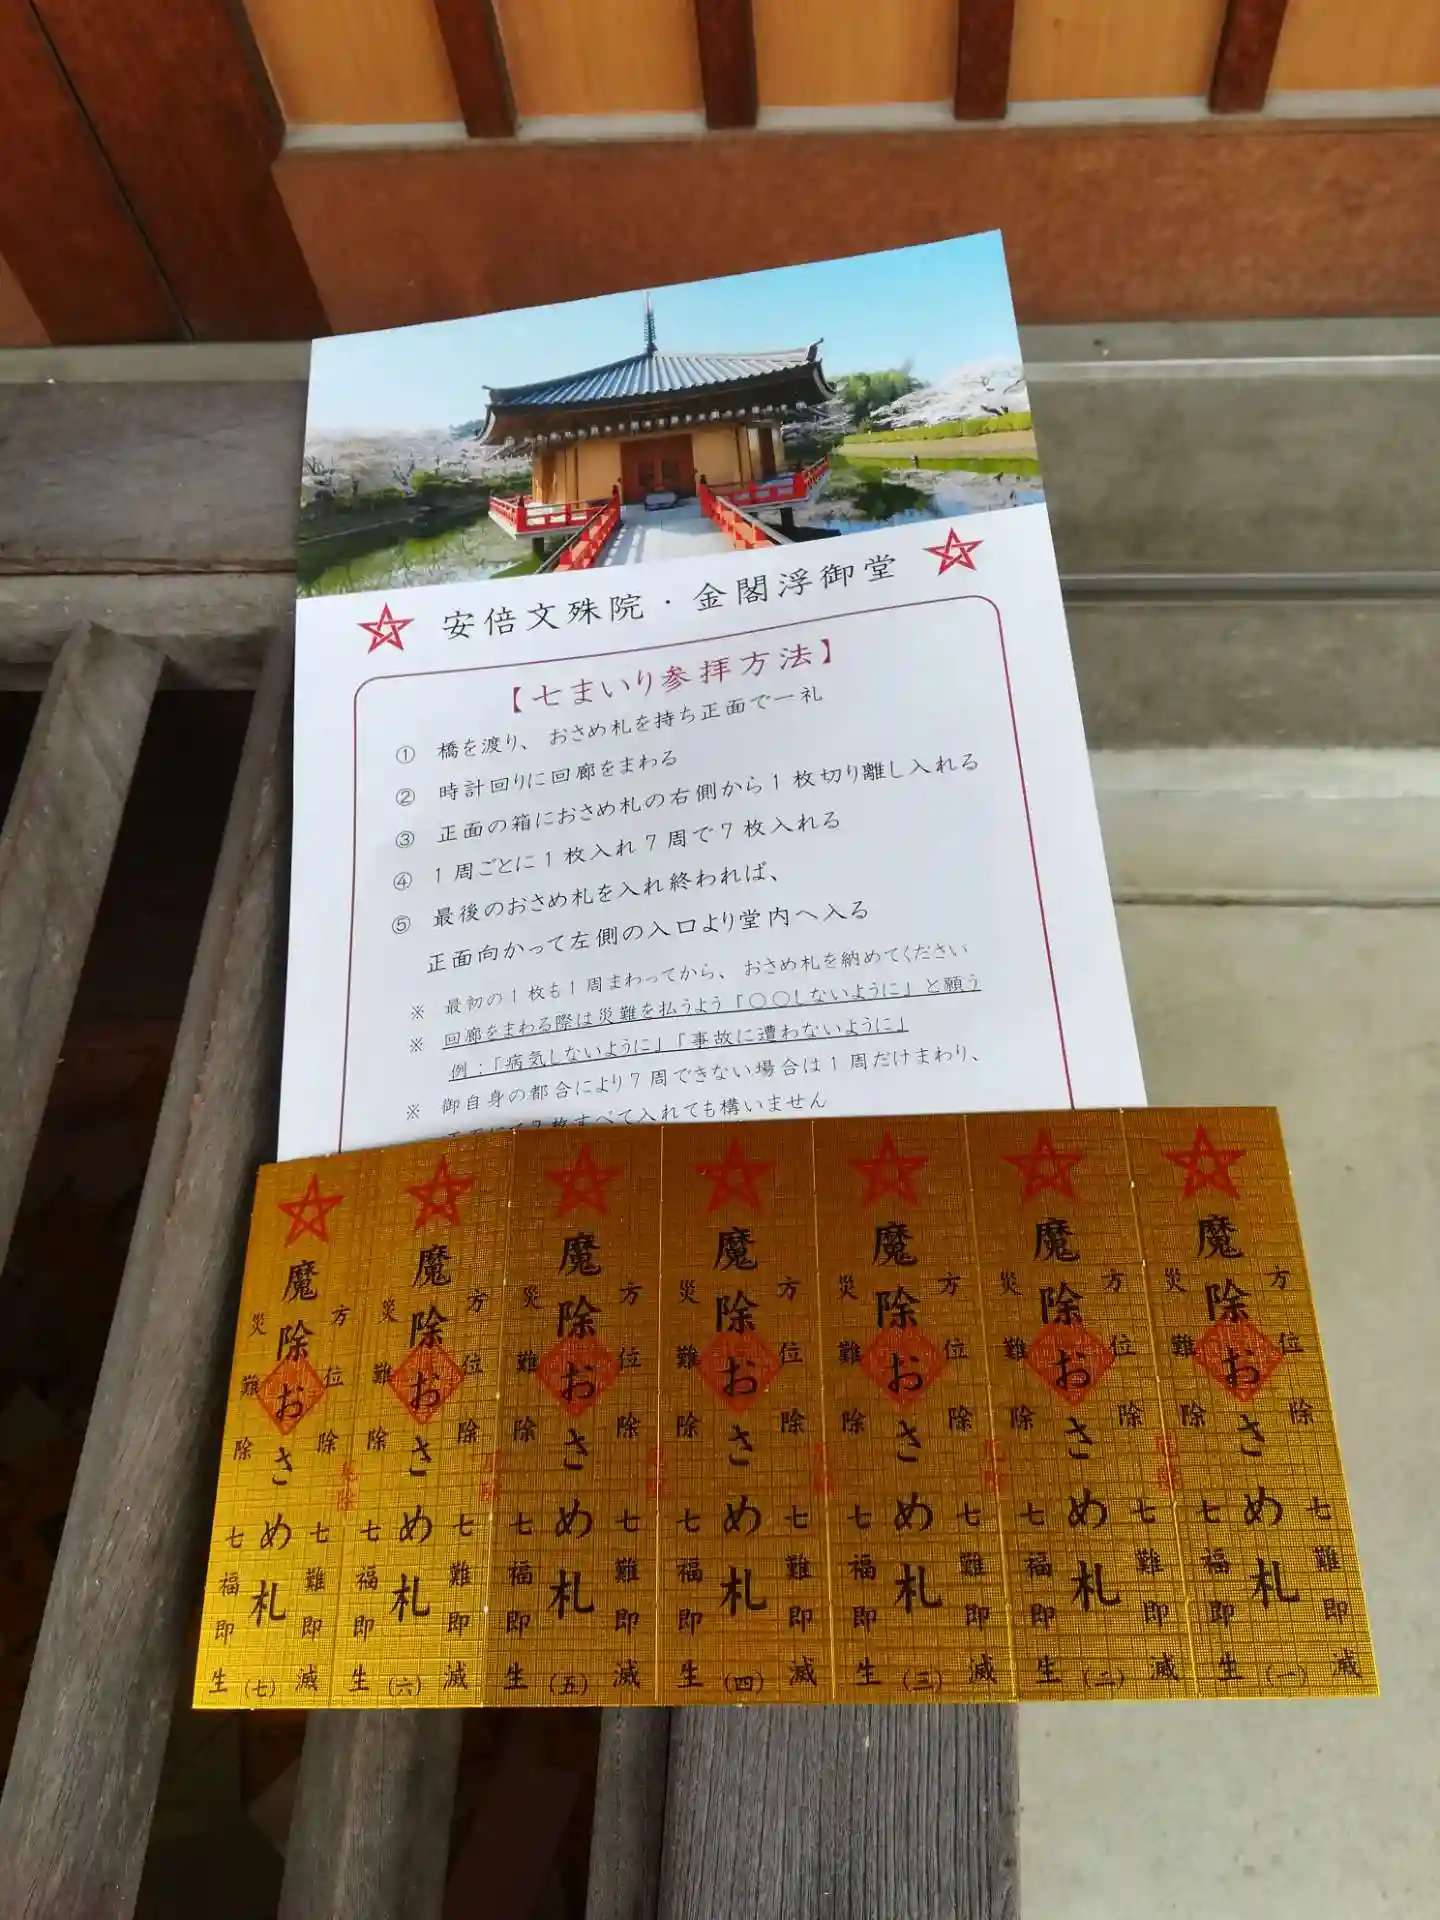 安倍文殊院・金閣浮御堂
【七まいり参拝方法】
① 橋を渡り、おさめ札を持ち正面で一礼
② 時計回りに回廊をまわる
③ 正面の箱におさめ札の右側から1枚切り離し入れる
④ 1周ごとに1枚入れ7周で7枚入れる
⑤ 最後のおさめ札を入れ終われば、
正面向かって左側の入口より堂内へ入る
※ 最初の1枚も1周まわってから、おさめ札を納めてください
※ 回廊をまわる際は災難を払うよう「○○しないように」と願う
例：「病気しないように」「事故に遭わないように」
※ 御自身の都合により7周できない場合は1周だけまわり、
正面にて7枚すべて入れても構いません
方位除 七難即滅
魔除おさめ札 (一)
災難除 七福即生
方位除 七難即滅
魔除おさめ札 (二)
災難除 七福即生
方位除 七難即滅
魔除おさめ札 (三)
災難除 七福即生
方位除 七難即滅
魔除おさめ札 (四)
災難除 七福即生
方位除 七難即滅
魔除おさめ札 (五)
災難除 七福即生
方位除 七難即滅
魔除おさめ札 (六)
災難除 七福即生
方位除 七難即滅
魔除おさめ札 (七)
災難除 七福即生